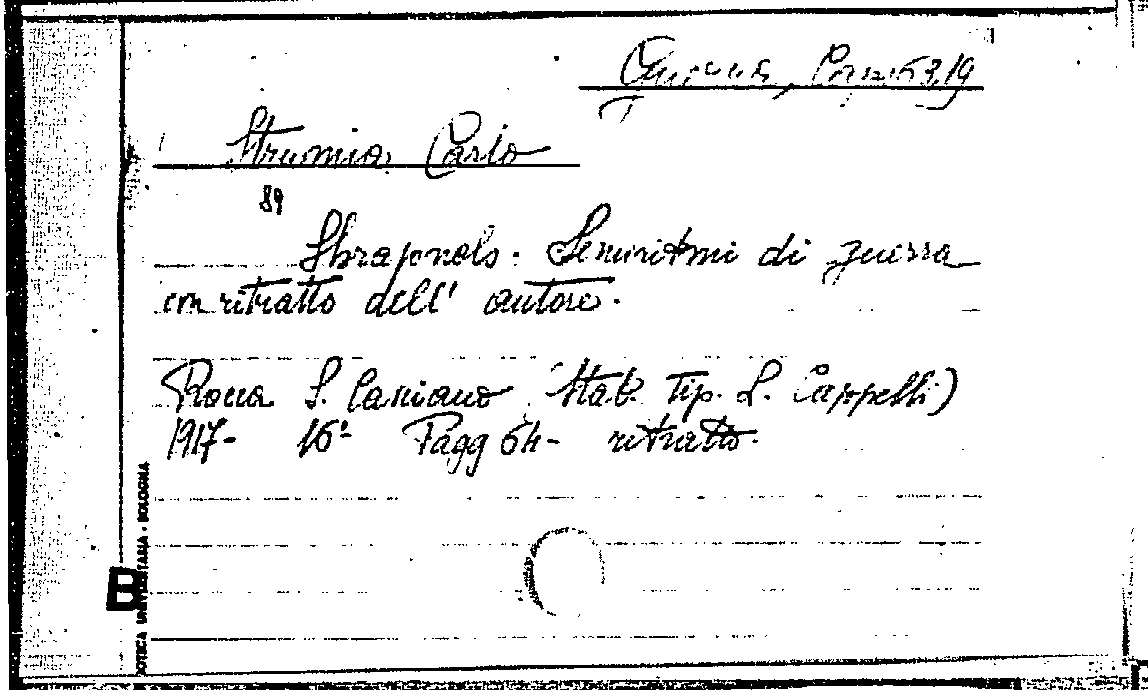 Guerra, Cap. 63,19
Strumia Carlo
89
Shrapnels. Semiritmi di guerra
con ritratto dell' autore.
Rocca S. Casciano (Stab. Tip. L. Cappelli)
1917- 16º Pagg 64- ritratto.
OTECA UNIVERSITARIA - BOLOGNA